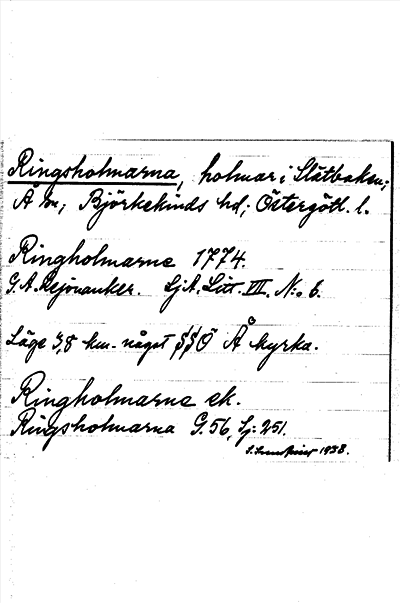 Ringsholmarna, holmar i Slätbaken;
Å sn; Björkekinds hd; Östergötl. l.
Ringholmarne 1774.
G.A. Rejonanker. Sj.A. Litt. VII, N:o 6.
Läge 3,8 km. något SSÖ Å kyrka.
Ringholmarna ek.
Ringsholmarna G. 56, Sj: 251.
1938.